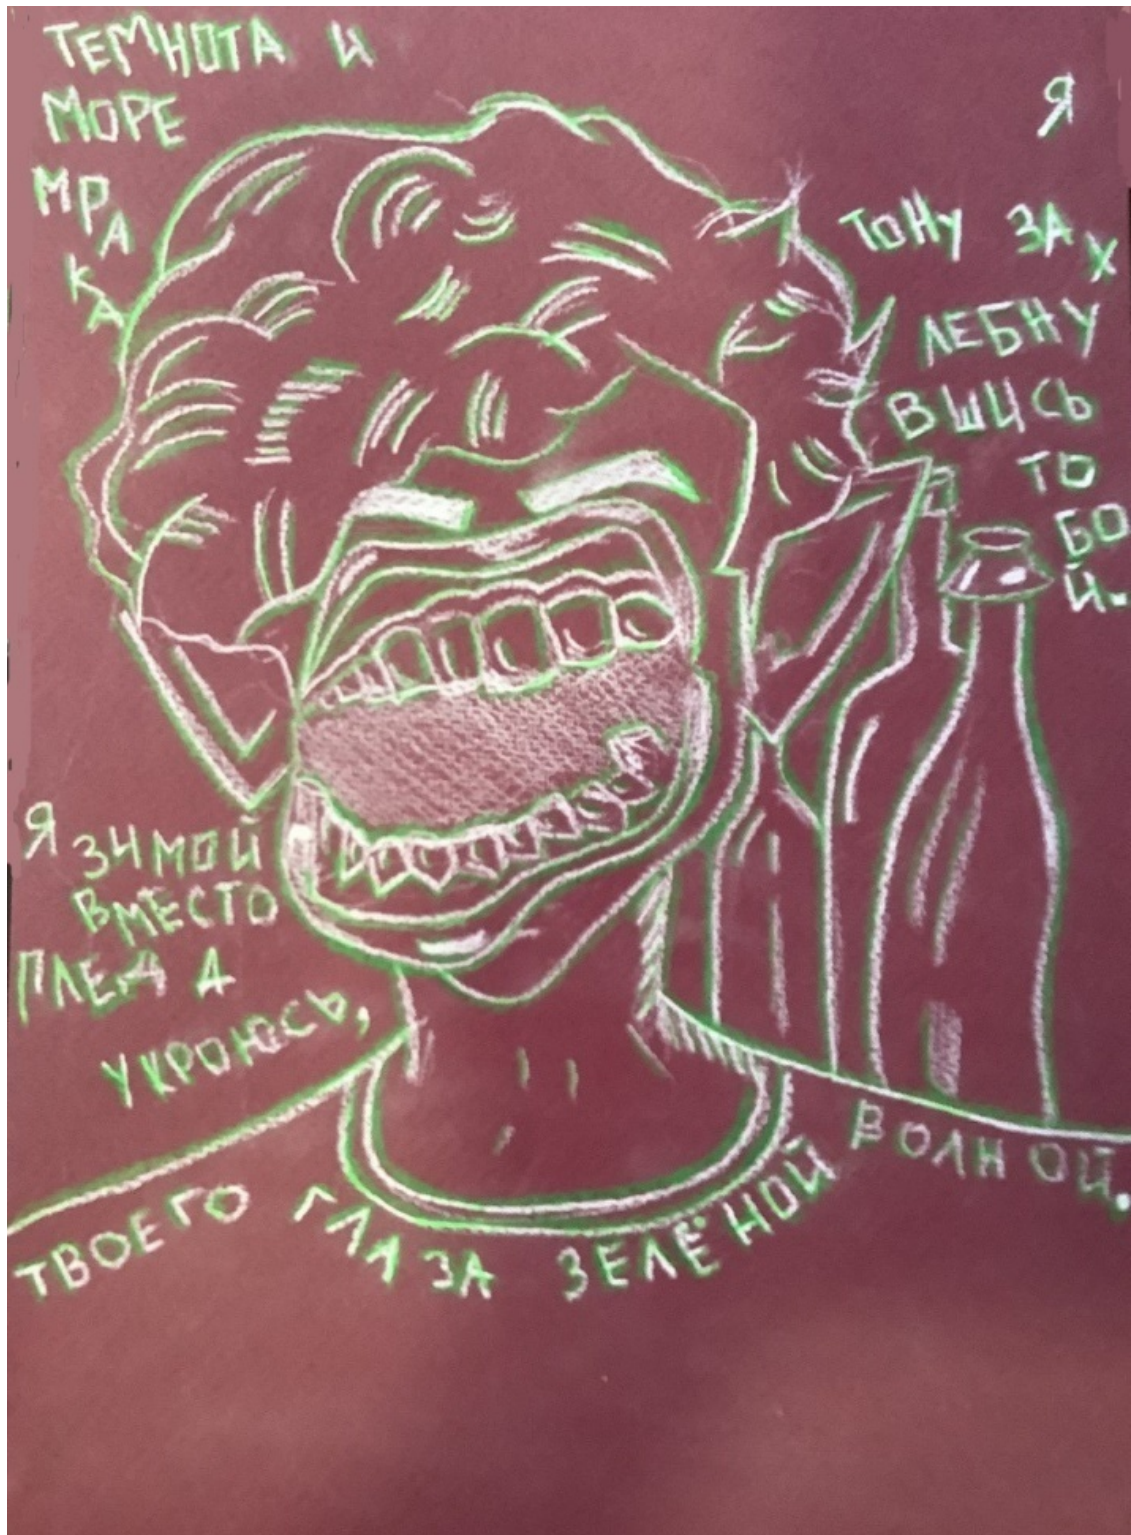 ТЕМНОТА И
МОРЕ
МРА
КА
Я
ТОНУ ЗАХ
ЛЕБНУ
ВШИСЬ
ТО
БО
Й.
Я ЗИМОЙ
ВМЕСТО
ПЛЕДА
УКРОЮСЬ,
ТВОЕГО ГЛАЗА ЗЕЛЁНОЙ ВОЛНОЙ.